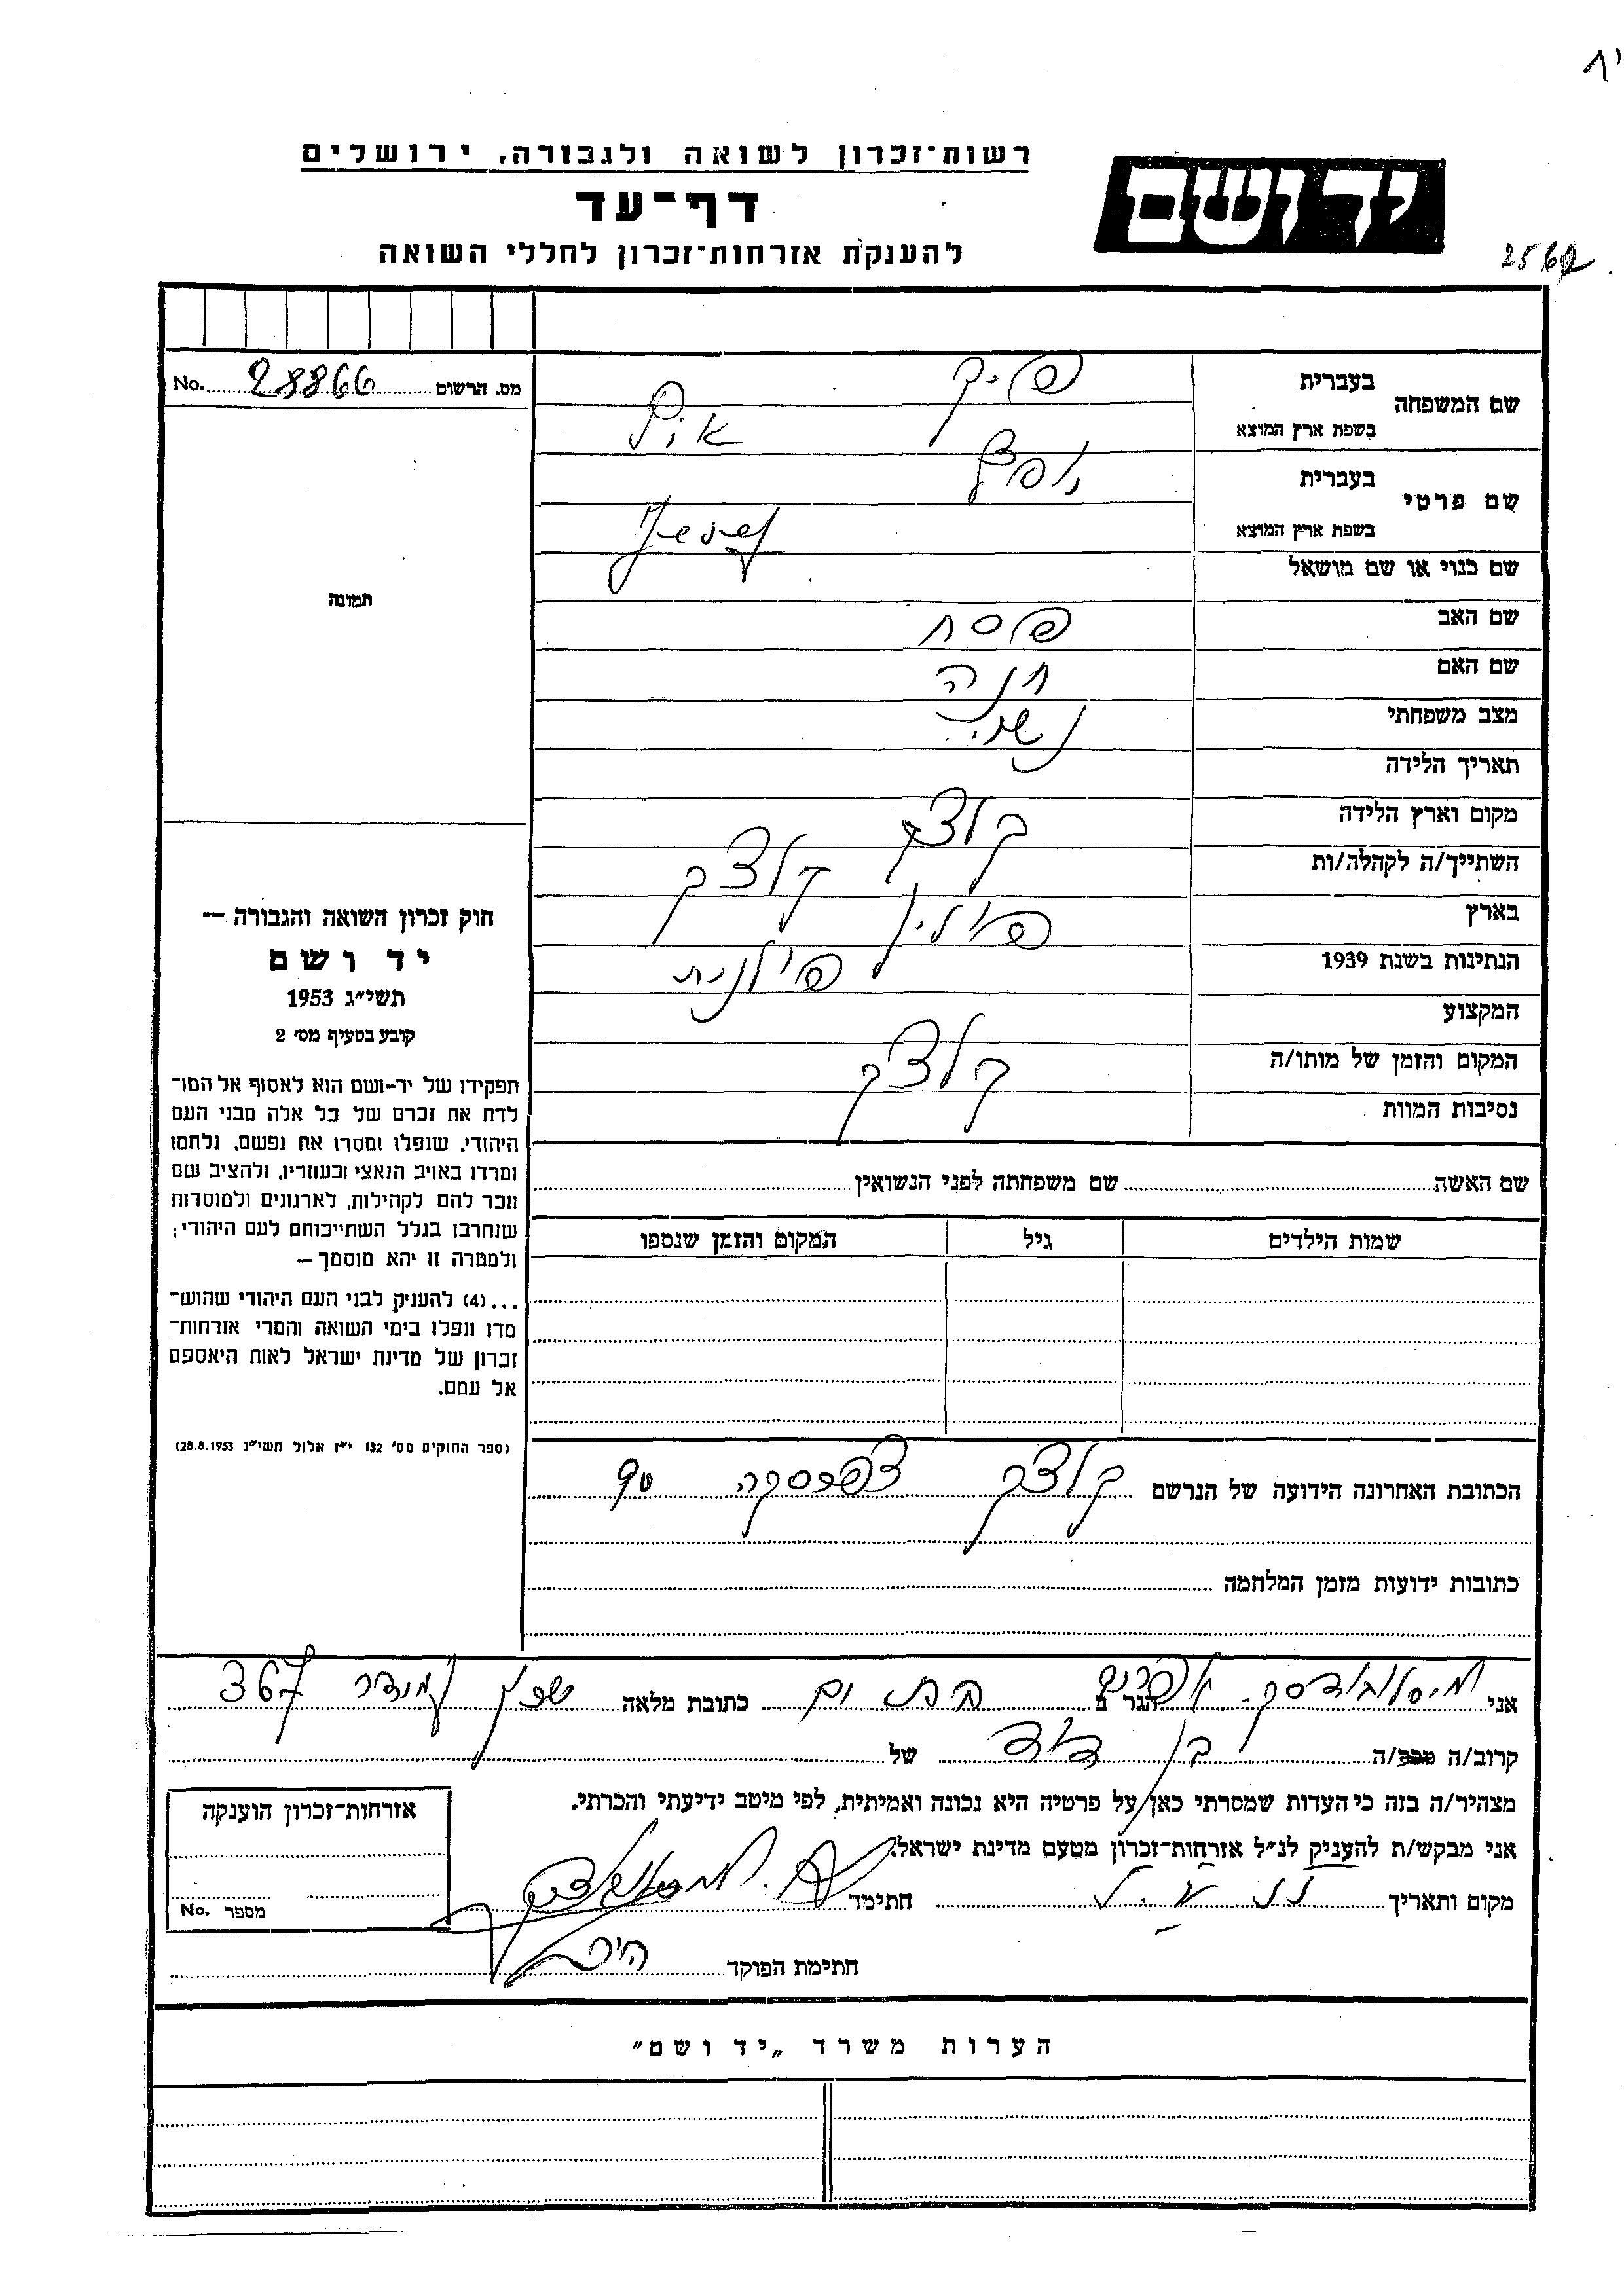 רשות־זכרון לשואה ולגבורה, ירושלים
דף־עד
להענקת אזרחות־זכרון לחללי השואה
יד ושם
2562
No. 28866 מס. הרשום
שם המשפחה
בעברית פיק
בשפת ארץ המוצא
שם פרטי
בעברית
בשפת ארץ המוצא
שם כנוי או שם מושאל
שם האב פסח
שם האם חנה
מצב משפחתי נשוי
תאריך הלידה
מקום וארץ הלידה קלצק
השתייך/ה לקהלה/ות קלצק
בארץ פולין
הנתינות בשנת 1939 פולנית
המקצוע
המקום והזמן של מותו/ה קלצק
נסיבות המוות
תמונה
חוק זכרון השואה והגבורה —
יד ושם
תשי״ג 1953
קובע בסעיף מס׳ 2
תפקידו של יד-ושם הוא לאסוף אל המו־
לדת את זכרם של כל אלה מבני העם
היהודי, שנפלו ומסרו את נפשם, נלחמו
ומרדו באויב הנאצי ובעוזריו, ולהציב שם
וזכר להם לקהילות, לארגונים ולמוסדות
שנחרבו בגלל השתייכותם לעם היהודי;
ולמטרה זו יהא מוסמך —
...(4) להעניק לבני העם היהודי שהוש־
מדו ונפלו בימי השואה והמרי אזרחות־
זכרון של מדינת ישראל לאות היאספם
אל עמם.
(ספר החוקים מס׳ 132 י״ז אלול תשי״ג 28.8.1953)
שם האשה שם משפחתה לפני הנשואין
שמות הילדים גיל המקום והזמן שנספו
הכתובת האחרונה הידועה של הנרשם קלצק
כתובות ידועות מזמן המלחמה
אני אפרים הגר ב בת ים כתובת מלאה 367
קרוב/ה מכר/ה בן דוד של
מצהיר/ה בזה כי העדות שמסרתי כאן על פרטיה היא נכונה ואמיתית, לפי מיטב ידיעתי והכרתי.
אני מבקש/ת להעניק לנ״ל אזרחות־זכרון מטעם מדינת ישראל.
מקום ותאריך חתימה
חתימת הפוקד
אזרחות־זכרון הוענקה
מספר No.
הערות משרד „יד ושם״